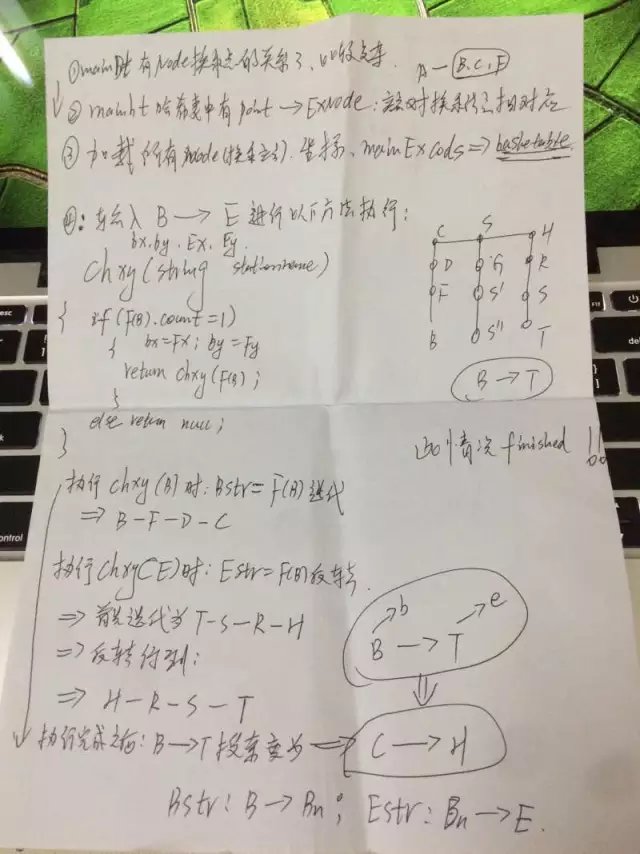 ① mainDt 有 Node 换乘点的关系了、
A — B.C.F
② mainht 哈希表中有 point → ExNode:
③ 加载所有 Node(换乘站). 坐标、mainExCods => hashtable
④: 输入 B → E 进行以下方法执行:
bx.by. Ex. Ey.
Chxy (string stationname)
{ if (F(B).count = 1)
{ bx = Fx ; by = Fy
return chxy (F(B) ;
}
else return null ;
}
C S H
D G R
F S' S
B S'' T
B → T
finished !!
执行 Chxy (B) 时: Bstr = F(B) 迭代
=> B - F - D - C
执行 Chxy (E) 时: Estr = F(B) 反转
=> 首先迭代为 T - S - R - H
=> 反转得到:
=> H - R - S - T
b e
B → T
执行完成之后: B → T 搜索变为 => C → H
Bstr : B → Bn ; Estr : Bn → E.